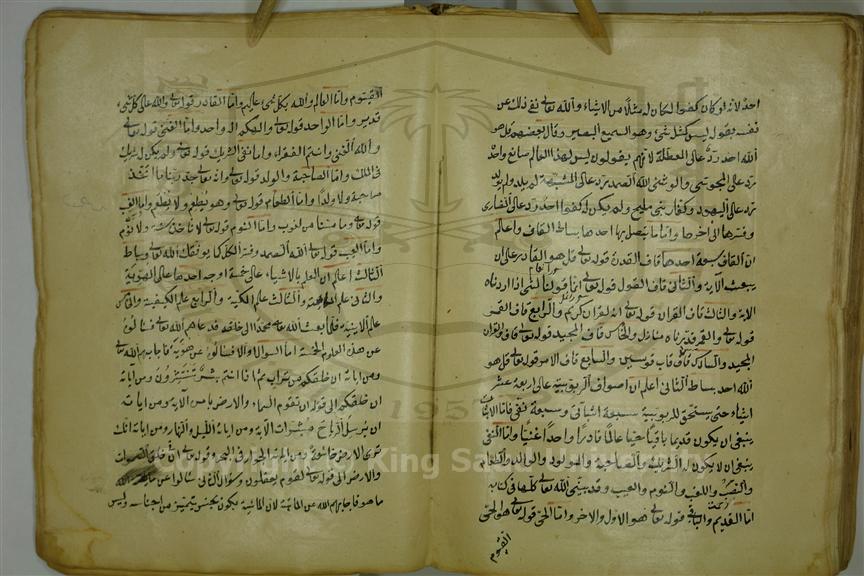 احد لانه لو كان كفوا لكان له مثلا من الاشياء والله تعالى نفى ذلك عن
نفسه بقوله ليس كمثله شئ وهو السميع البصير وقال بعضهم قل هو
الله احد رد على المعطلة لانهم يقولون ليس لهذا العالم صانع واحد
رد على المجوسى والوثنى الله الصمد رد على المشبهة لم يلد ولم يولد
رد على اليهود وكفار بنى مليح ولم يكن له كفوا احد رد على النصارى
وفسرها الى آخرها واما ما يتصل بها احدها بساط القاف واعلم
ان القاف سبعة احدها قاف القدرة قوله تعالى قل هو القادر على ان
يبعث الآية والثانى قاف القول قوله تعالى انما قولنا لشئ اذا اردناه
الآية والثالث قاف القران قوله تعالى انه لقران كريم والرابع قاف القمر
قوله تعالى والقمر قدرناه منازل والخامس قاف المجيد قوله تعالى ق والقران
المجيد والسادس قاف قاب قوسين والسابع قاف الامر قوله تعالى قل هو
الله احد بساط الثانى اعلم ان اصواف الربوبية على اربعة عشر
اشياء حتى يستحق للربوبية سبعة اثباتى وسبعة نفى فاما الاثبات
ينبغى ان يكون قديما باقيا حيا عالما قادرا واحدا غنيا واما النفى
ينبغى ان لا يكون له الشريك والصاحبة والمولود والوالد والطعام
والنصب واللغب والنوم والعيب وقد بينها الله تعالى كلها فى كتابه
اما القديم والباقى قوله تعالى هو الاول والاخر واما الحى قوله تعالى هو الحى
القيوم
القيوم واما العالم والله بكل شئ عالم واما القادر قوله تعالى والله على كل شئ
قدير واما الواحد قوله تعالى والهكم اله واحد واما الغنى قوله تعالى
والله الغنى وانتم الفقراء واما نفى الشريك قوله تعالى ولم يكن له شريك
فى الملك واما الصاحبة والولد قوله تعالى وانه تعالى جد ربنا ما اتخذ
صاحبة ولا ولدا واما الطعام قوله تعالى وهو يطعم ولا يطعم واما اللغب
قوله تعالى وما مسنا من لغوب واما النوم قوله تعالى لا تأخذه سنة ولا نوم
واما العيب قوله تعالى الله الصمد وفسر الكل كما يوفقك الله تعالى وبساط
الثالث اعلم ان العلم بالاشياء على خمسة اوجه احدها على الهوية
والثانى علم الماهية والثالث علم الكمية والرابع علم الكيفية والخامس
علم الاينية فلما بعث الله تعالى محمدا الى خلقه قد عاهم الله تعالى فسالوا
عن هذه العلوم الخمسة اما السؤال الاول فسالوا عن هوية فاجابهم الله تعالى
ومن اياته ان خلقكم من تراب ثم اذا انتم بشر تنتشرون ومن اياته
ان خلقكم الى قوله ان تقوم السماء والارض بامره الآية ومن اياته
ان يرسل الرياح مبشرات الآية ومن اياته الليل والنهار ومن اياته انك
ترى الارض خاشعة ومن اياته الجوار فى البحر وقوله تعالى ان فى خلق السموات
والارض الى قوله تعالى لقوم يعقلون وسؤال الثانى سالوا عن ماهية الله
ما هو فاجابهم الله عن المائية لان المائية يكون بجنس يتميز من اجناسه وليس
1957
Copyright © King Saud University